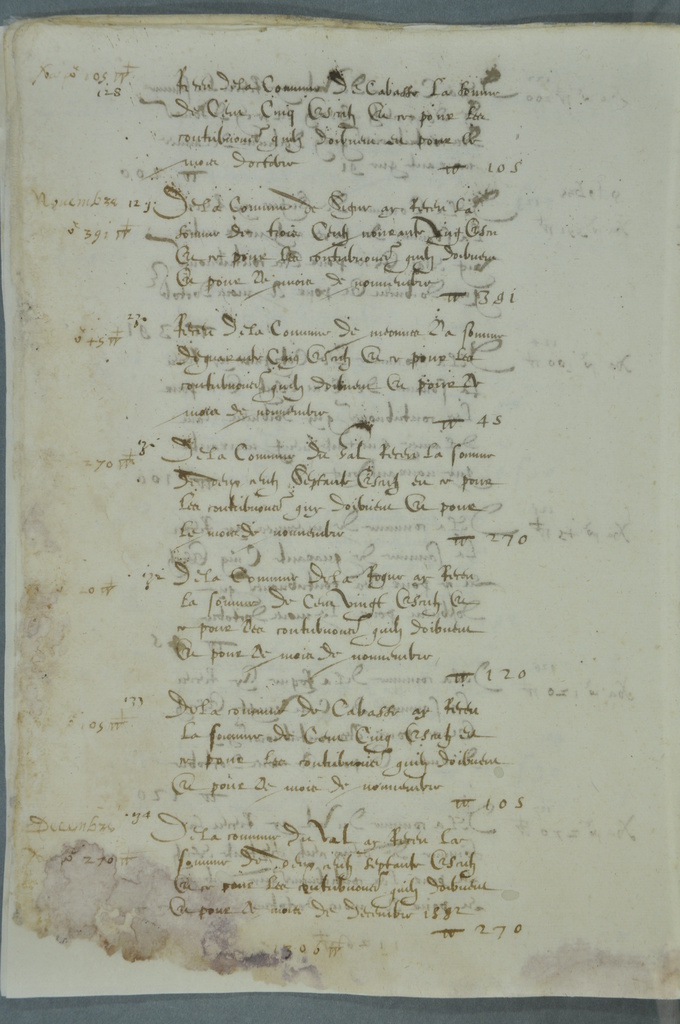 105
128
Receu de la Commune de Cabasse La somme
de Cent Cinq Escutz Et ce pour Les
contributions quilz doibuent en pour le
mois doctobre
105
Novembre 129
De la Commune de Segur ay Receu La
391
somme de trois Centz nonante Ung Escu
Et ce pour Les contributions quilz doibuent
Et pour Le mois de nouuembre
391
Receu de la Commune de meaunes La somme
45
de quarante Cinq Escutz Et ce pour Les
contributions quilz doibuent Et pour Le
mois de nouuembre
45
De la Commune du Val Receu La somme
270
de deux centz Septante Escutz en ce pour
Les contributions que doibuent Et pour
Le mois de nouuembre
270
132
De la Commune de la Roque ay Receu
La somme de Cent vingt Escutz Et
ce pour Les contributions quilz doibuent
Et pour Le mois de nouuembre
120
133
De la commune de Cabasse ay Receu
105
La somme de Cent Cinq Escutz Et
ce pour Les contributions quilz doibuent
Et pour Le mois de nouuembre
105
Decembre 134
De la commune du Val ay Receu La
270
somme de deux centz septante Escutz
Et ce pour Les contributions quilz doibuent
Et pour Le mois de decembre 1592
270
1306